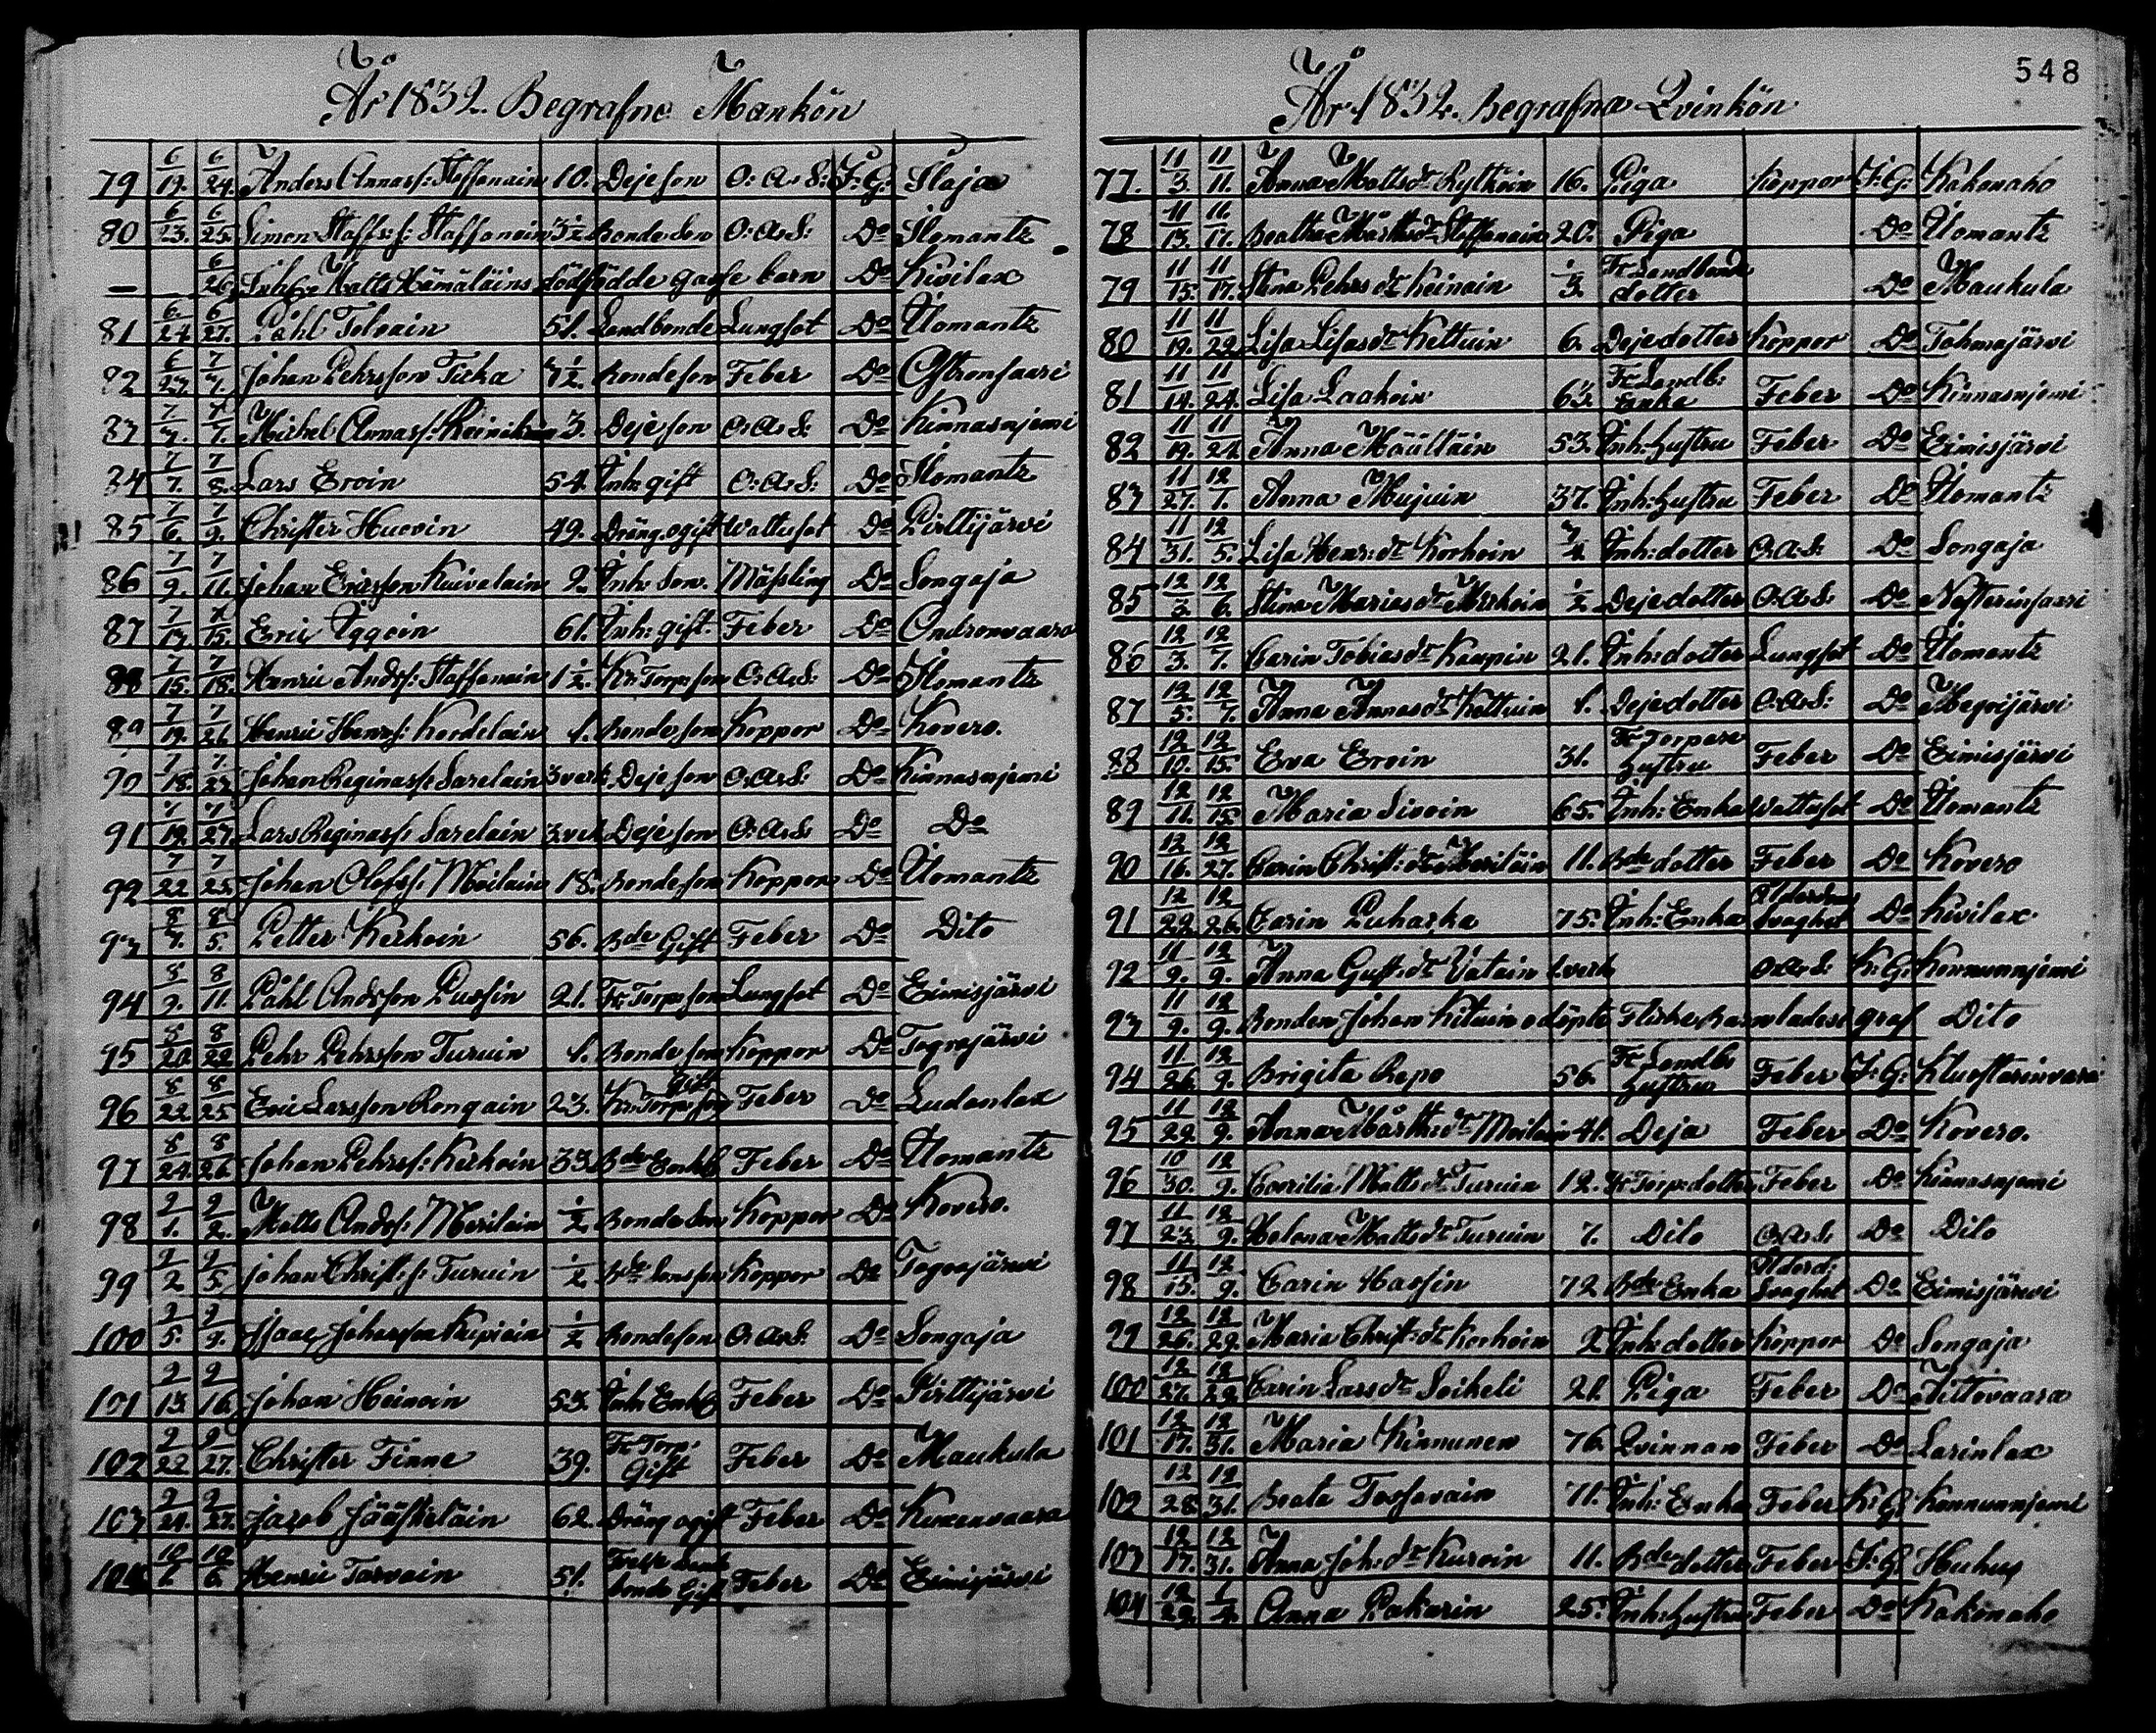 År 1832. Begrafne Mankön
79 6/19. 6/24. Anders Annass: Staffanain 10. Dejeson O: A: S: F: G: Ilaja
80 6/23. 6/25. Simon Staffs: s: Staffanain 3 1/2 Bonde Son O: A: S: Do Ilomantz
— 6/26. Inh: Matts Hämäläins dödfödde gosse barn Do Kivilax
81 6/24. 6/27. Påhl Tolvain 51. Landbonde Lungsot Do Ilomantz
82 6/27. 7/7. Johan Pehrsson Ticka 7 1/2. Bondeson Feber Do Oskonsaari
83 7/7. 7/7. Michel Annass: 3. Dejeson O: A: S: Do Kinnasnjemi
84 7/7. 7/8. Lars Eroin 54. Inh: gift O: A: S: Do Ilomantz
85 7/6. 7/9. Christer Huovin 49. Dräng ogift Wattusot Do Pirttijärvi
86 7/9. 7/11. Johan Ericsson Kuivalain 2. Inh: Son. Mässling Do Songaja
87 7/13. 7/15. Eric Iggoin 61. Inh: gift. Feber Do Ondronvaara
88 7/15. 7/18. Henric Andss: Staffanain 1 1/2. Kr: Torp: son O: A: S: Do Ilomantz
89 7/19. 7/26. Henric Henrss: Kordelain 1. Bonde son Koppor Do Kovero.
90 7/18. 7/27. Johan Reginass: Sarelain 3 veck: Deje son O: A: S: Do Kinnasnjemi
91 7/19. 7/27. Lars Reginass: Sarelain 3 vek Deje son O: A: S: Do Do
92 7/22 7/25. Johan Olofss: Moilain 18. Bonde son Koppor Do Ilomantz
93 8/7. 8/5. Petter Kerkoin 56. Bde Gift Feber Do Dito
94 8/9. 8/11. Påhl Andsson Pussin 21. Fr: Torp: son Lungsot Do Eimisjärvi
95 8/20 8/22 Pehr Pehrsson Turuin 1. Bonde son Koppor Do Togvajärvi
96 8/22 8/25 Eric Larsson Rongain 23. Kr: Torp: son Gift Feber Do Ludonlax
97 8/24. 8/26. Johan Pehrss: Kerkoin 33. Bde Enkl: Feber Do Ilomantz
98 9/1. 9/2. Matts Andss: Merilain 1/2 Bonde Son Koppor Do Kovero.
99 9/2 9/5. Johan Christs: s: Turuin 1/2 Bde Sons son Koppor Do Togvajärvi
100 9/5. 9/9. Isaac Johansson 1/2 Bondeson O: A: S: Do Songaja
101 9/13. 9/16. Johan Hoinoin 53. Inh: Enkl: Feber Do Pirttijärvi
102 9/22 9/27. Christer Finne 39. Fr: Torp: Gift Feber Do Maukula
103 9/24. 9/27. Jacob Jääskeläin 62. Dräng ogift Feber Do Kuxenvaara
104 10/1. 10/6. Henric Tarvain 51. Frelse Land bonde Gift Feber Do Eimisjärvi
548
År 1832. Begrafne Qvinkön
77. 11/3 11/11. Anna Mattsdr Rytköin 16. Piga Koppor F: G: Kakonaho
78 11/13. 11/17. Beatha Mårthsdr Staffanain 20. Piga Do Ilomantz
79 11/15. 11/17. Stina Pehrsdr Keinain 1/3. Fr: Landbonde dotter Do Maukula
80 11/19. 11/22. Lisa Lisasdr Kettuin 6. Dejedotter Koppor Do Tohmajärvi
81 11/14. 11/24. Lisa Laakoin 63. Fr: Landb: Enka Feber Do Kinnasnjemi
82 11/19. 11/24. Anna Määttäin 53. Inh: hustru Feber Do Eimisjärvi
83 11/27. 12/1. Anna Mujuin 37. Inh: hustru Feber Do Ilomantz
84 11/31. 12/5. Lisa Henr: dr Korhoin 3/4 Inh: dotter O: A: S: Do Songaja
85 12/3. 12/6. Stina Mariasdr Kerkoin 1/2 Dejedotter O: A: S: Do Nesterinsaari
86 12/3. 12/7. Carin Tobiasdr Kaupin 21. Inh: dotter Lungsot Do Ilomantz
87 12/5. 12/7. Anna Annasdr Kettuin 1. Dejedotter O: A: S: Do Megrijärvi
88 12/10. 12/15. Eva Eroin 31. Fr: Torpare hustru Feber Do Eimisjärvi
89 12/11. 12/15. Maria Sivoin 65. Inh: Enka Wattusot Do Ilomantz
90 12/16. 12/27. Carin Christ: dr Meriläin 11. Bde dotter Feber Do Kovero
91 12/22. 12/26. Carin Puhakka 75. Inh: Enka Ålderdoms svaghet Do Kivilax
92 11/9. 12/9. Anna Gust: dr Vatain 1 veck O: A: S: K: G: Konnunnjemi
93 11/9. 12/9. Bonden Johan Kituin odöpte Flickebarn lades i graf Dito
94 11/26. 12/9. Brigita Repo 56. Fr: Landbs hustru Feber F: G: Kluosterinvara
95 11/29. 12/9. Anna Mårth: dr Moilain 41. Deja Feber Do Kovero.
96 10/30. 12/9. Coecilia Mattsdr Turuin 12. Fr: Torp: dotter Feber Do Kinnasnjemi
97 11/23. 12/9. Helena Mattsdr Turuin 7. Dito O: A: S: Do Dito
98 11/15. 12/9. Carin Hassin 72 Bde Enka Ålderd: Svaghet Do Eimisjärvi
99 12/26. 12/29. Maria Christ: dr Korhoin 2 Inh: dotter Koppor Do Songaja
100 12/27. 12/29. Carin Larsdr Soikeli 21. Piga Feber Do
101 12/17. 12/31. Maria Kinnunen 76. Qvinnan Feber Do Larinlax
102 12/28. 12/31. Beata Tossavain 71. Inh: Enka Feber K: G: Konnunnjemi
103 12/17. 12/31. Anna Joh: dr Kuroin 11. Bde dotter Feber F: G: Huhus
104 12/29. 1/2. Anna Pakarin 25. Inh: hustru Feber Do Kakonaho